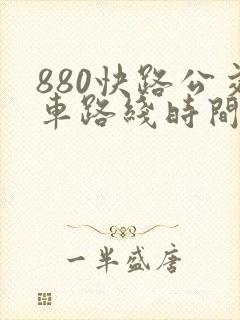 880快路公交
車路綫時間
一半盛唐